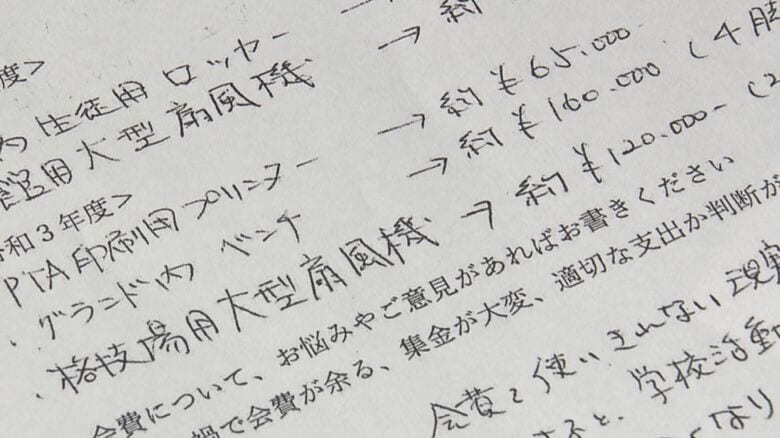 度>
内 生徒用 ロッカー → 約
館用大型扇風機 → 約
和3年度>
PTA印刷用プリンター → 約 ¥65.000-
・グランド内 ベンチ → 約 ¥160.000 (4脚
・格技場用大型扇風機 → 約 ¥120.000- (2
会費について、お悩みやご意見があればお書きください
禍で会費が余る、集金が大変、適切な支出か判断が
会費を使いきれない現実
と、学校活動
なり